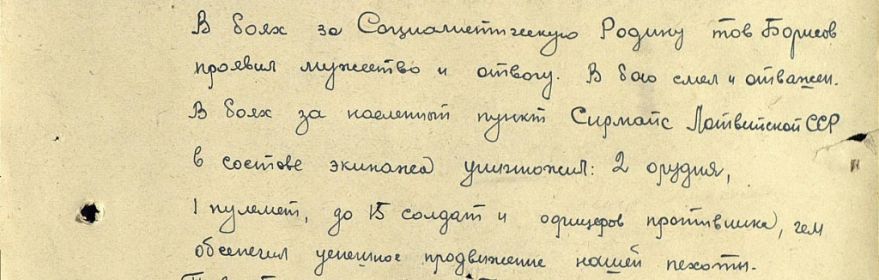 В боях за Социалистическую Родину тов Борисов
проявил мужество и отвагу. В бою смел и отважен.
В боях за населенный пункт Сирмайс Латвийской ССР
в составе экипажа уничтожил: 2 орудия,
1 пулемет, до 15 солдат и офицеров противника, чем
обеспечил успешное продвижение нашей пехоты.